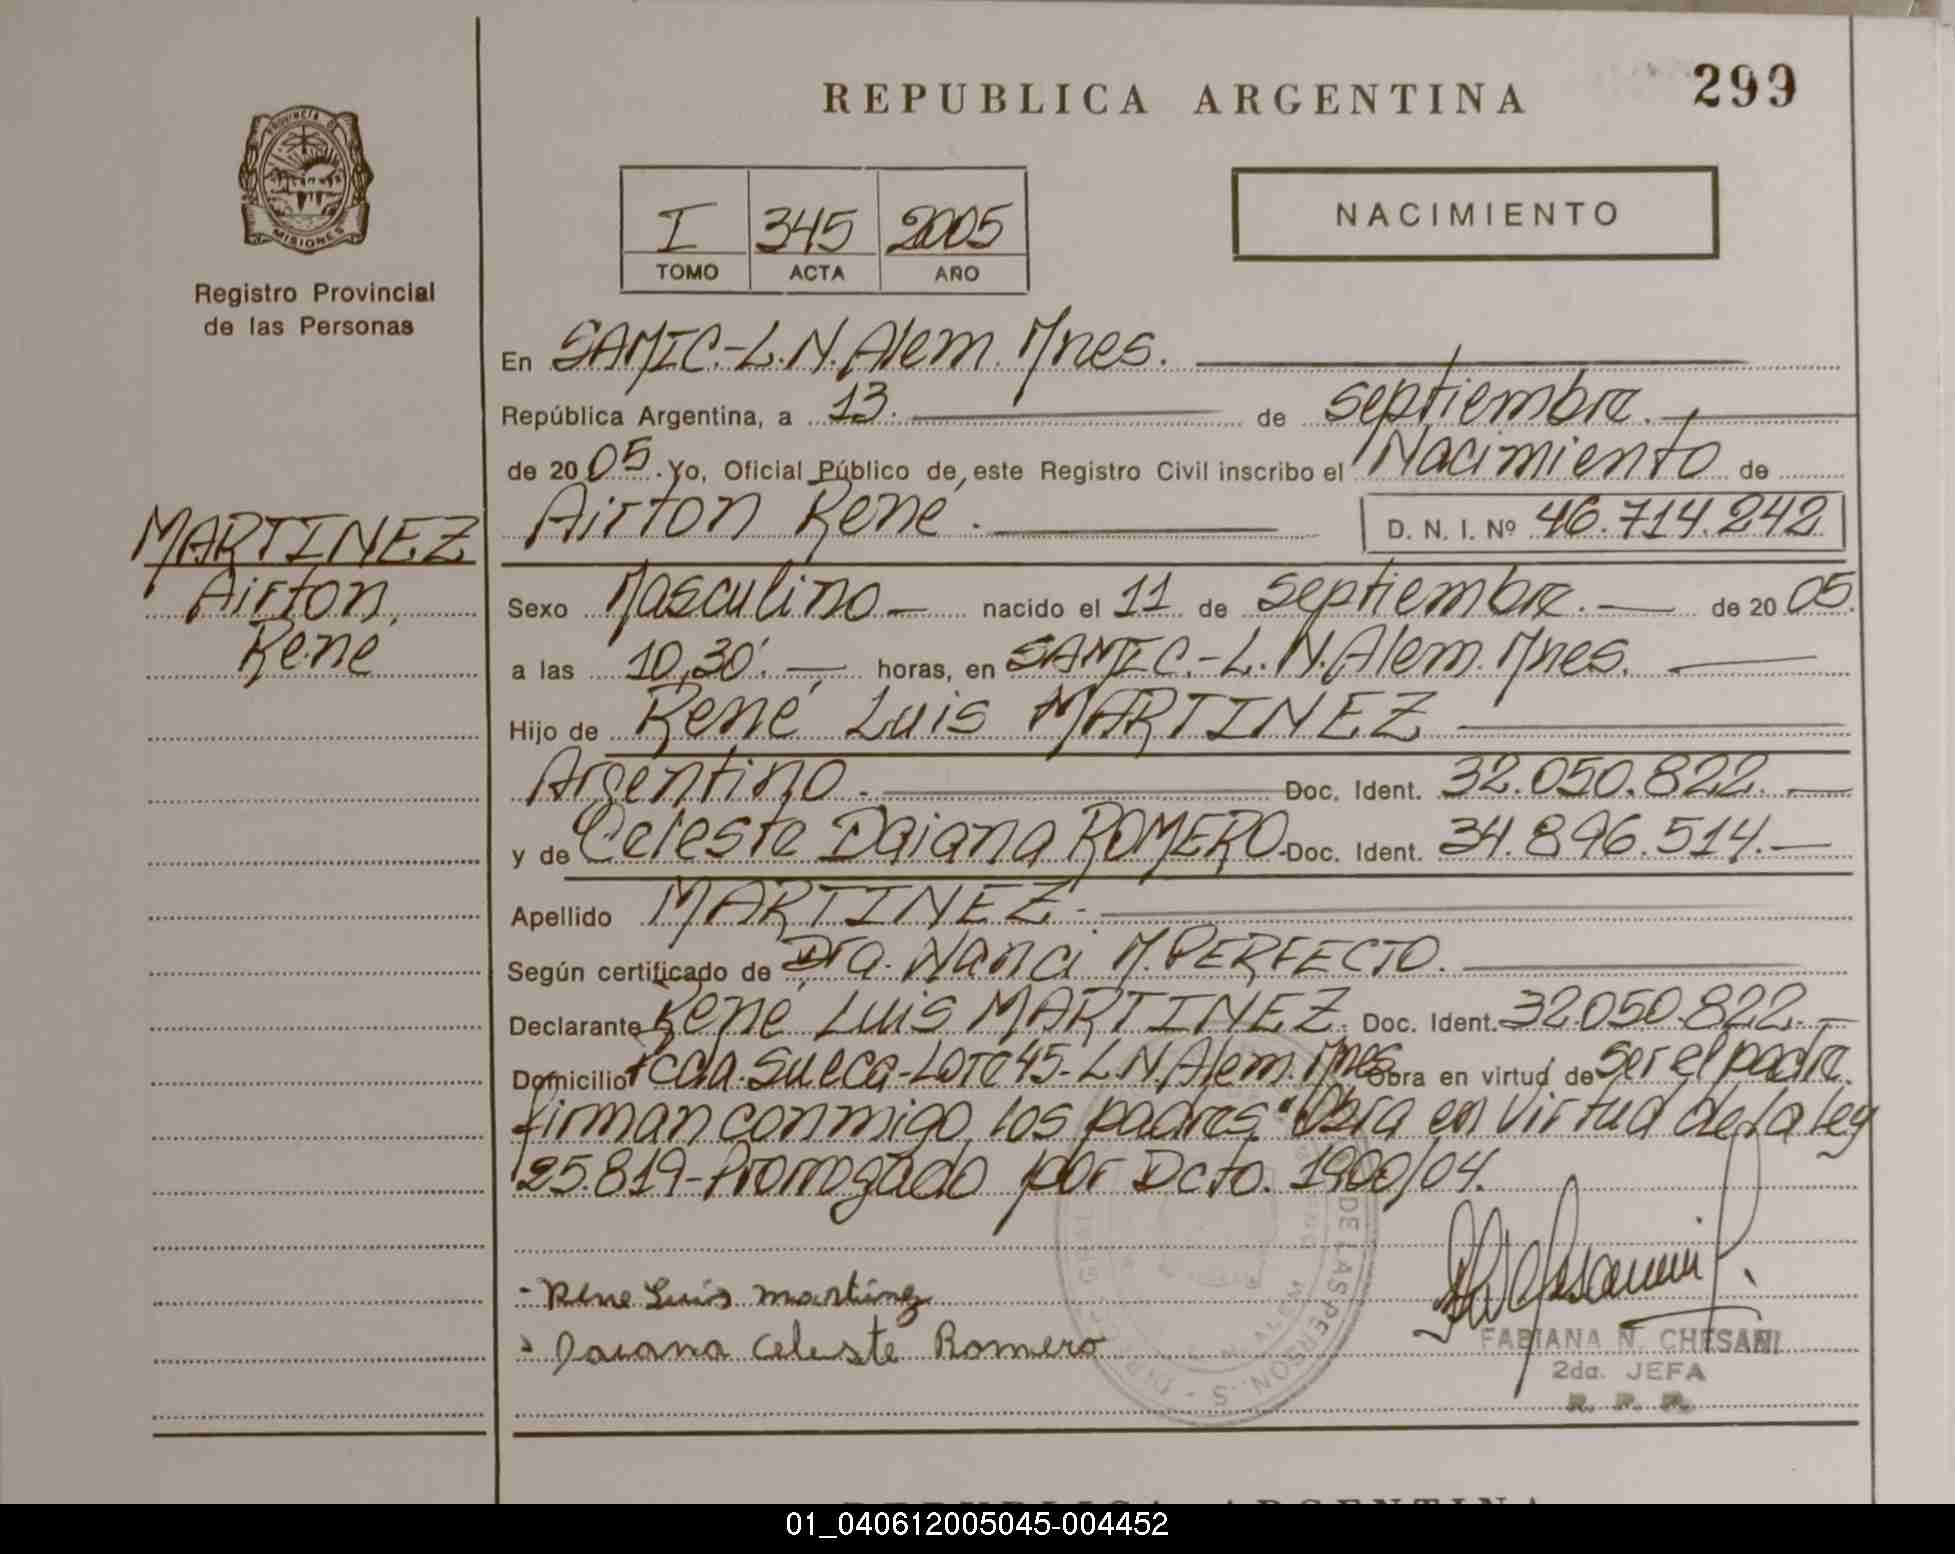 REPUBLICA ARGENTINA
299
PROVINCIA DE
MISIONES
Registro Provincial
de las Personas
I 345 2005
TOMO ACTA AÑO
NACIMIENTO
En SAMIC.-L.N.Alem.Mnes.
República Argentina, a 13. de septiembre.
de 2005. Yo, Oficial Público de este Registro Civil inscribo el Nacimiento de
Airton René.
D. N. I. Nº 46.714.242
MARTINEZ
Airton
René
Sexo Masculino nacido el 11 de septiembre. de 2005.
a las 10,30'. horas, en SAMIC.-L.N.Alem.Mnes.
Hijo de René Luis MARTINEZ
Argentino. Doc. Ident. 32.050.822.
y de Celeste Daiana ROMERO. Doc. Ident. 34.896.514.
Apellido MARTINEZ.
Según certificado de Dra. Nanci M.PERFECTO.
Declarante René Luis MARTINEZ. Doc. Ident. 32.050.822.
Domicilio Pcda.Sueca-Lote 45-L.N.Alem.Mnes. Obra en virtud de ser el padre.
firman conmigo los padres. "Obra en virtud de la ley
25.819-Prorrogado por Dcto. 1900/04.
- Rene Luis martinez
- Daiana Celeste Romero
DE LAS PERSONAS
N. ALEM
FABIANA N. CHESANI
2da. JEFA
R. P. P.
REPUBLICA ARGENTINA
01_040612005045-004452